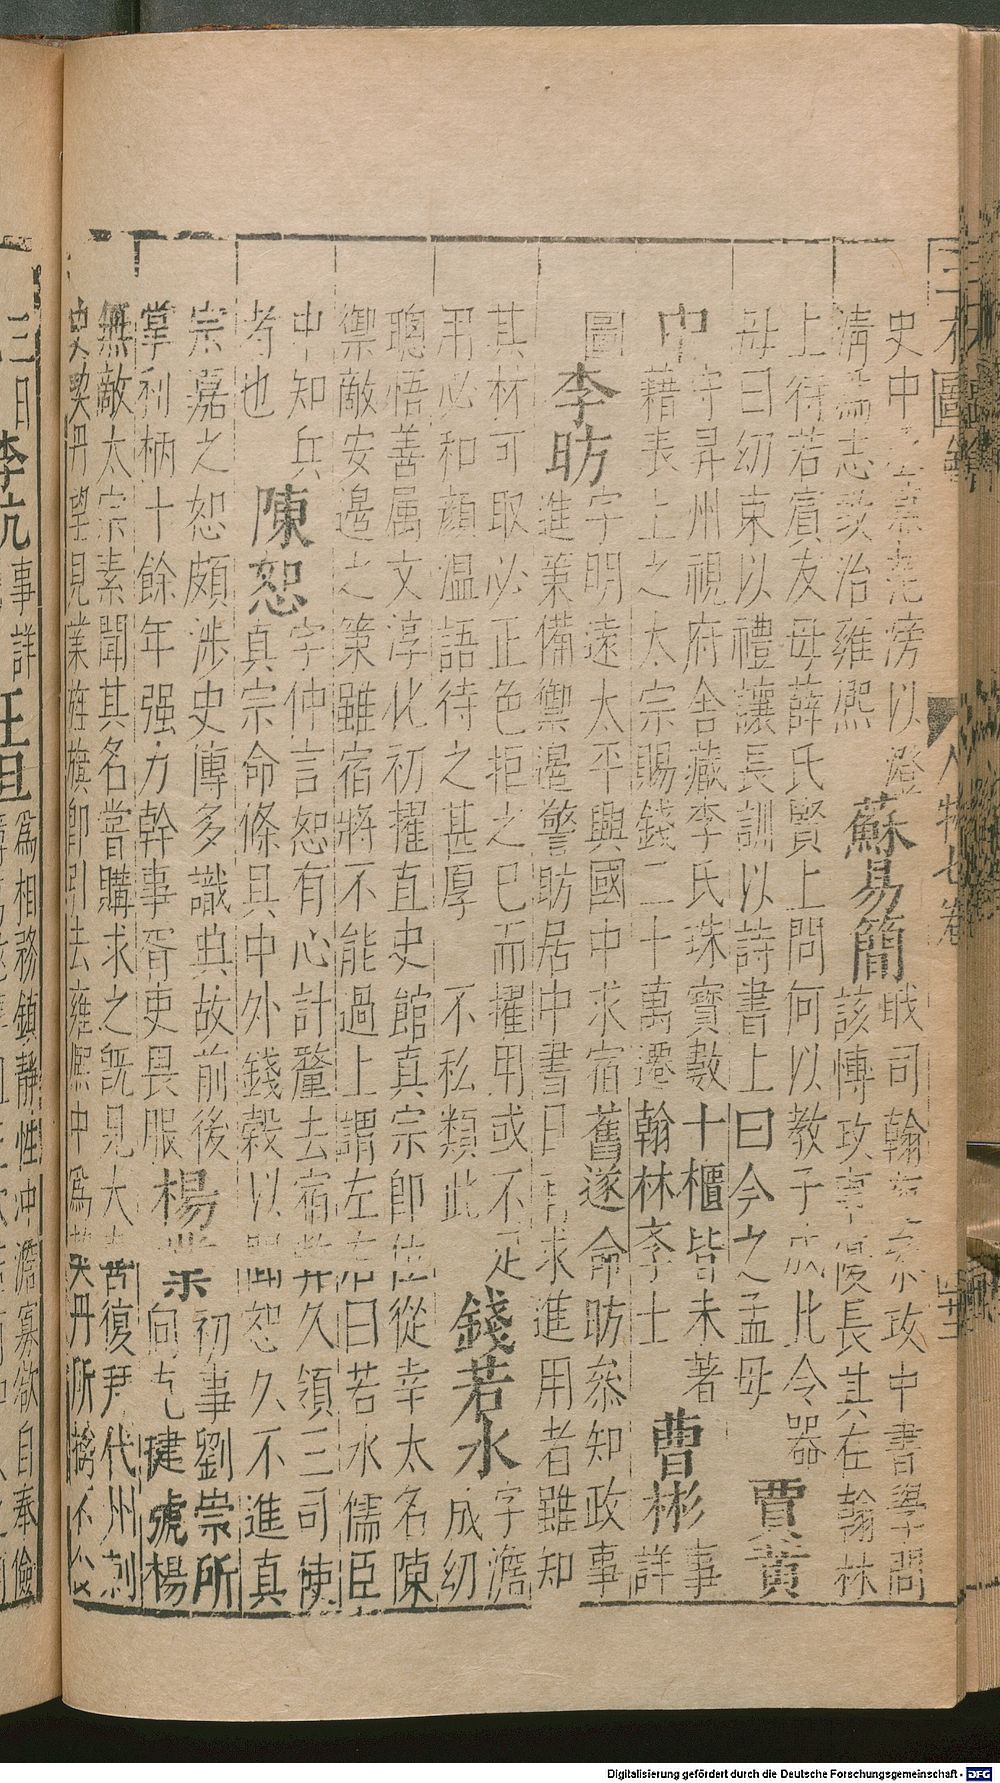 三才圖會 人物七卷
史中丞 傍以澄 蘇易簡 戩司翰 參政中書學問
清 志致治雍熙 該博政事 長其在翰林
上待若賓友母薛氏賢上問何以教子成此令器 賈黃
母曰幼束以禮讓長訓以詩書上曰今之孟母
中 守昇州視府舍藏李氏珠寶數十櫃皆未著 曹彬 事
籍表上之太宗賜錢二十萬遷翰林學士 詳
圖 李昉 字明遠太平興國中求宿舊遂命昉參知政事
進策備禦邊警昉居中書日 求進用者雖知
其材可取必正色拒之已而擢用或不足 錢若水 字澹
用必和顏温語待之甚厚 不私類此 成幼
聰悟善属文淳化初擢直史館真宗即位從幸太名陳
禦敵安邊之策雖宿將不能過上謂左右曰若水儒臣
中知兵 陳恕 字仲言恕有心計釐去宿弊久領三司使
考也 真宗命條具中外錢穀以聞恕久不進真
宗嘉之恕頗涉史傳多識典故前後 楊業 初事劉崇所
掌利柄十餘年强力幹事胥吏畏服 向克 建號楊
無敵太宗素聞其名嘗購求之既見大 復 代州刺
史契丹望見業旌旗即引去雍熙中爲 契丹所擒不
三日 李沆 事詳 王旦 爲相務鎮靜性冲澹寡欲自奉儉
Digitalisierung gefördert durch die Deutsche Forschungsgemeinschaft - DFG